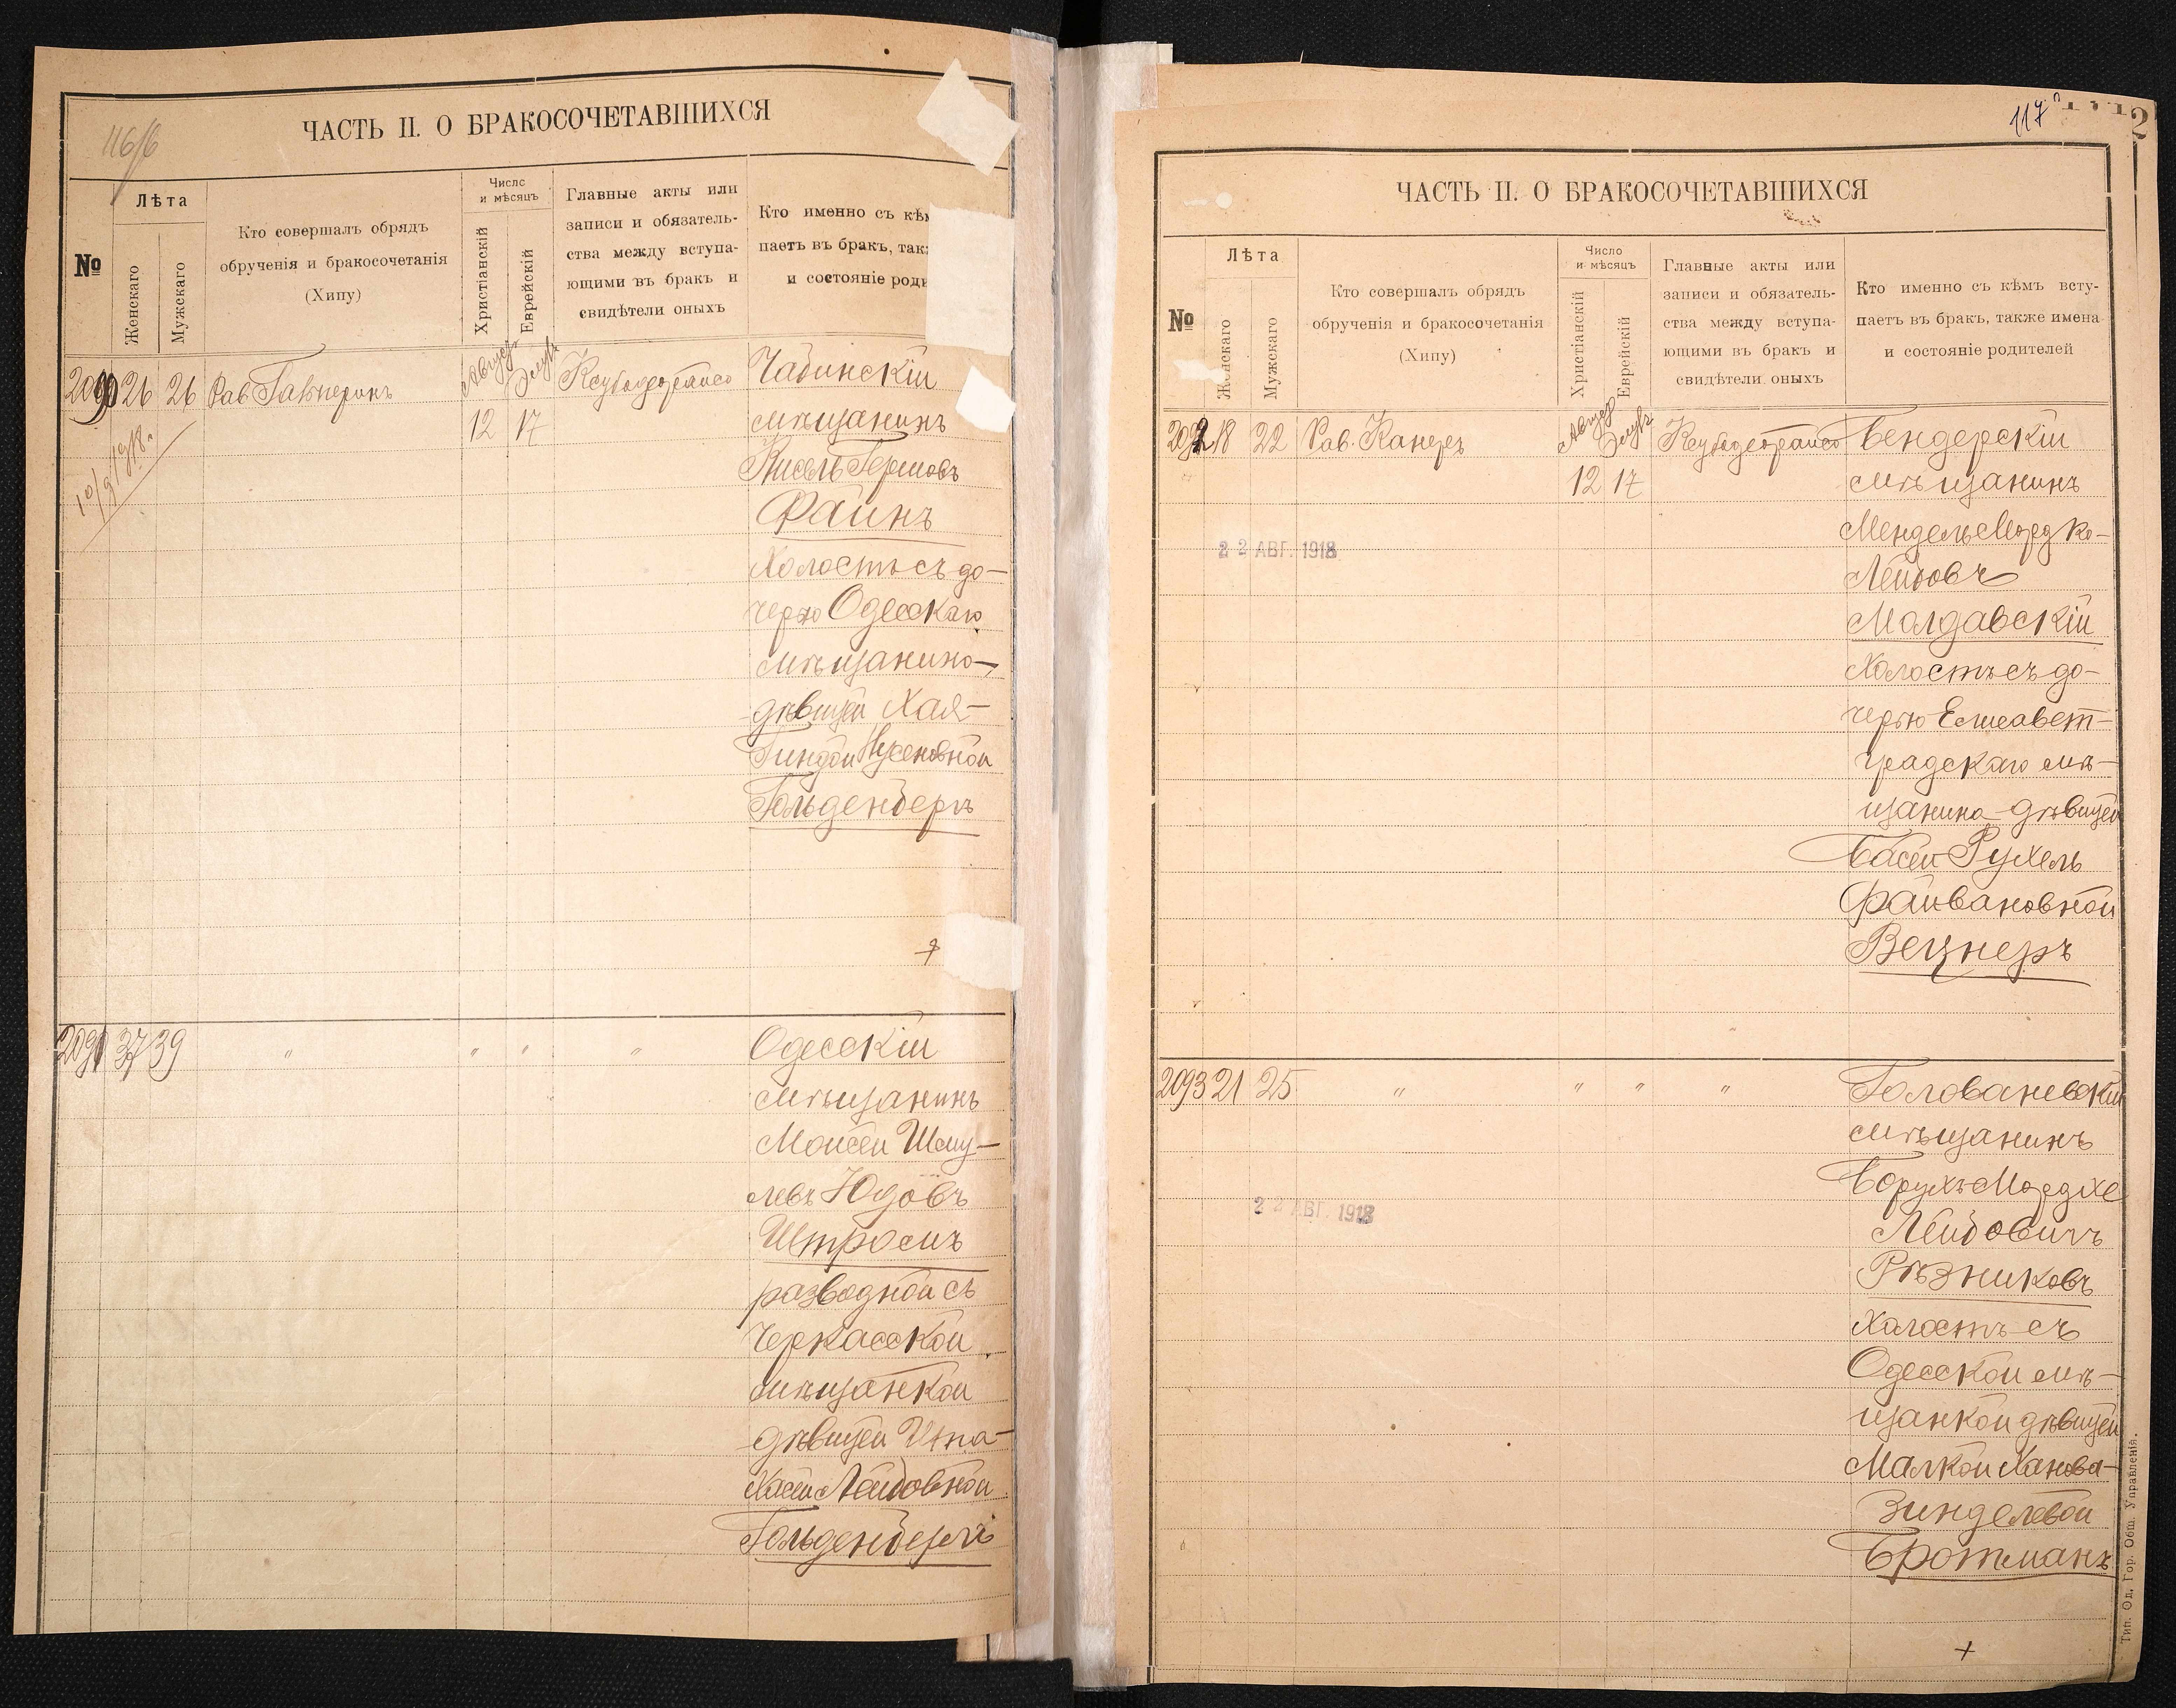 116/6
ЧАСТЬ II. О БРАКОСОЧЕТАВШИХСЯ
№
Лѣта
Женскаго
Мужскаго
Кто совершалъ обрядъ
обрученія и бракосочетанія
(Хипу)
Число
и мѣсяцъ
Христіанскій
Еврейскій
Главные акты или
записи и обязатель-
ства между вступа-
ющими въ бракъ и
свидѣтели оныхъ
Кто именно съ кѣм
паетъ въ бракъ, так
и состояніе роди
2090 26 26 Рав. Гальперинъ Август Элулъ Чадинскій
12 17 мѣщанинъ
10/9 1918.
Кисель Гершовъ
Файнъ
Холостъ съ до-
черью Одесскаго
мѣщанина-
дѣвицей Хая-
Гиндой Нусеновной
Гольденбергъ
2091 37 39 " " " " Одесскій
мѣщанинъ
Моисей Шму-
левъ Юдовъ
Штромъ
разводной съ
Черкасской
мѣщанкой
дѣвицей Ита-
Хасей Лейбовной
Гольденбергъ
117
2
ЧАСТЬ II. О БРАКОСОЧЕТАВШИХСЯ
№
Лѣта
Женскаго
Мужскаго
Кто совершалъ обрядъ
обрученія и бракосочетанія
(Хипу)
Число
и мѣсяцъ
Христіанскій
Еврейскій
Главные акты или
записи и обязатель-
ства между вступа-
ющими въ бракъ и
свидѣтели оныхъ
Кто именно съ кѣмъ всту-
паетъ въ бракъ, также имена
и состояніе родителей
2092 18 22 Рав. Канеръ Август Элулъ Бендерскій
12 17 мѣщанинъ
Мендель Мордко-
22 АВГ. 1918
Лейбовъ
Молдавскій
Холостъ съ до-
черью Елисавет-
градскаго мѣ-
щанина дѣвицей
Басей Рухель
Файвановной
Вецнеръ
2093 21 25 " " " " Голованевскій
мѣщанинъ
Борухъ Мордхе
22 АВГ. 1918
Лейбовичъ
Рѣзниковъ
Холостъ съ
Одесской мѣ-
щанкой дѣвицей
Малкой Ханова-
Зинделевой
Бротманъ
Тип. Од. Гор. Общ. Управленія.